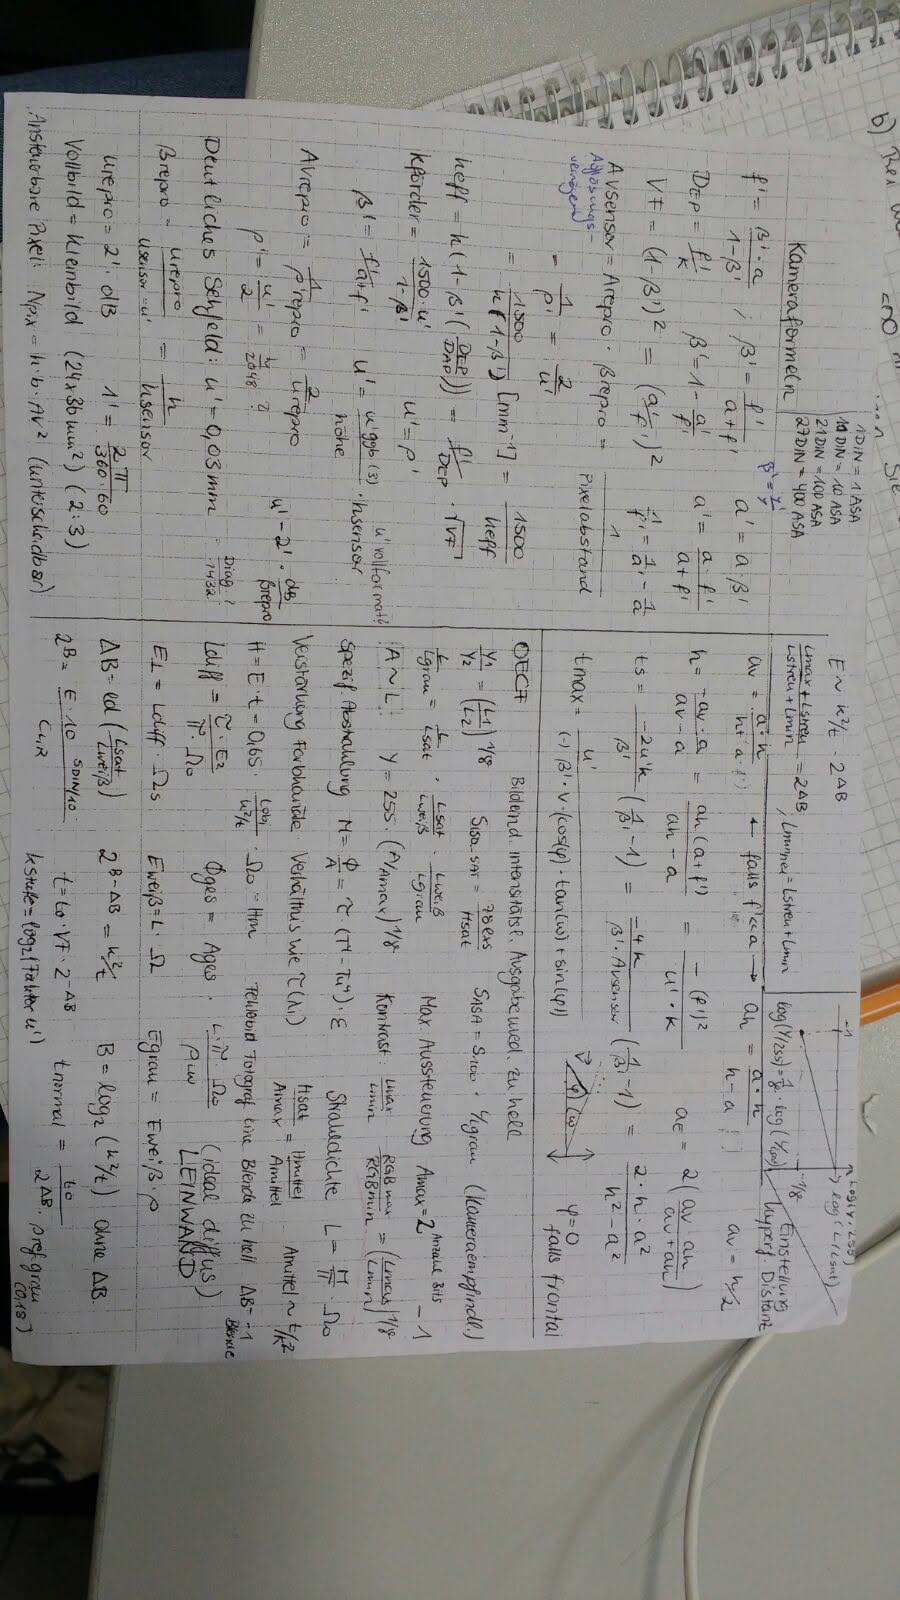 Kameraformeln
1 DIN = 1 ASA
11 DIN = 10 ASA
21 DIN = 100 ASA
27 DIN = 400 ASA
f' = β'·a / 1-β' ; β' = f' / a+f' a' = a β'
DEP = f'/k β' = 1 - a'/f' a' = a·f' / a+f'
VF = (1-β')² = (a'/f')² 1/f' = 1/a' - 1/a
AVsensor = Arepro · βrepro = 1 / Pixelabstand
Auflösungsvermögen
= 1/ρ' = 2/u'
= 1500 / k(1-β') [mm-1] = 1500 / keff
keff = k (1-β' (DEP/DAP)) = f'/DEP · √VF
kförder = 1500·u' / 1-β' u' = ρ'
β' = f' / a+f' u' = u'ggb (3) / höhe · hsensor
AVrepro = 1/ρ'repro = 2/urepro
ρ' = u'/2 = h/2048 ?
u' = 2' · dB/βrepro
Deutliches Sehfeld: u' = 0,03mm
βrepro = urepro / usensor = u' = h / hsensor
urepro = 2'·dB 1' = 2π / 360·60
Vollbild = Kleinbild (24x36mm²) (2:3)
Ansteuerbare Pixel: Npix = h·b·AV² (unterscheidbar)
E ~ k²/t · 2ΔB
Lmax+Lstreu / Lstreu+Lmin = 2ΔB, Lmin,neu = Lstreu+Lmin
log(Y/255) = 1/γ · log(L/Lsat)
Einstellung hyperf. Distanz
av = a·h / h+a ← falls f'<<a → ah = a·h / h-a av = h/2
h = -av·a / av-a = ah(a+f') / ah-a = -(f')² / u'·k ae = 2(av ah / av+ah)
ts = -2u'k / β' (1/β' -1) = -4k / β'·AVsensor (1/β' -1) = 2·h·a² / h²-a²
tmax = u' / (-) β'·v·(cos(φ)·tan(ω)+sin(φ)) φ=0 falls frontal
OECF Bildeind. intensitätsl. Ausgabemed. zu hell
Y1/Y2 = (L1/L2)1/γ Siso.sat = 78 lxs / Hsat SASA = S100 · 1/grau (Kameraempfindl.)
L/Lgrau = L/Lsat · Lsat/Lweiß · Lweiß/Lgrau Max Aussteuerung Amax = 2 Anzahl Bits - 1
!A~L! Y = 255·(A/Amax)1/γ Kontrast: Lmax/Lmin RGBmax/RGBmin = (Lmax/Lmin)1/γ
Spezif Abstrahlung M = Φ/A = τ (T⁴-Tu⁴)·ε Strahldichte L = M/π · Ω0
Verstärkung Farbkanäle Verhältnis wie τ(λi) Hsat/Amax = Hmittel/Amittel Amittel ~ t/k²
H = E·t = 0,65 · Lobj / k²/t · Ω0 = Hm Fehlbild Fotograf eine Blende zu hell ΔB=-1 Blende
Ldiff = τ·E2 / π·Ω0 Φges = Ages · L·π·Ω0 / ρw (ideal diffus) LEINWAND
E1 = Ldiff·Ωs Eweiß = L·Ω Egrau = Eweiß·ρ
ΔB = ld(Lsat/Lweiß) 2B-ΔB = k²/t B = log2(k²/t) ohne ΔB.
2B = E·10 SDIN/10 / CLIR t = t0·VF·2-ΔB tnormal = t0 / 2ΔB · ρref,grau (0,18)
kStufe = log2(Faktor u')